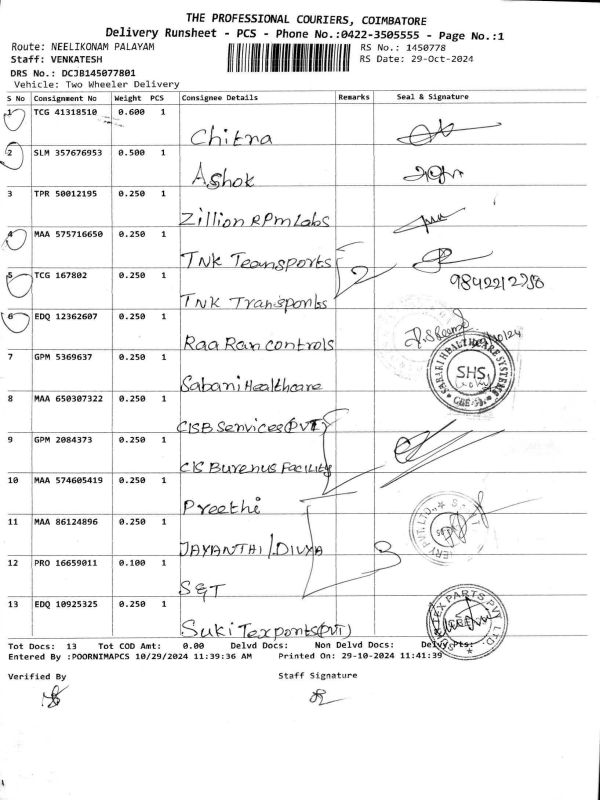 THE PROFESSIONAL COURIERS, COIMBATORE
Delivery Runsheet - PCS - Phone No.:0422-3505555 - Page No.:1
Route: NEELIKONAM PALAYAM RS No.: 1450778
Staff: VENKATESH RS Date: 29-Oct-2024
DRS No.: DCJB145077801
Vehicle: Two Wheeler Delivery
S No Consignment No Weight PCS Consignee Details Remarks Seal & Signature
1 TCG 41318510 0.600 1 Chitra
2 SLM 357676953 0.500 1 Ashok
3 TPR 50012195 0.250 1 Zillion RPM Labs
4 MAA 575716650 0.250 1 TNK Teansports 2
5 TCG 167802 0.250 1 TNK Transports
6 EDQ 12362607 0.250 1 Raa Ran controls
7 GPM 5369637 0.250 1 Sabani Healthcare SHS
8 MAA 650307322 0.250 1 CISB Services (PVT)
9 GPM 2084373 0.250 1 CIS Burenus Facility
10 MAA 574605419 0.250 1 Preethi
11 MAA 86124896 0.250 1 JAYANTHI / DIVYA 3
12 PRO 16659011 0.100 1 S&T
13 EDQ 10925325 0.250 1 Suki Texponts (PVT)
Tot Docs: 13 Tot COD Amt: 0.00 Delvd Docs: Non Delvd Docs: Delvy Pts:
Entered By :POORNIMAPCS 10/29/2024 11:39:36 AM Printed On: 29-10-2024 11:41:39
Verified By Staff Signature